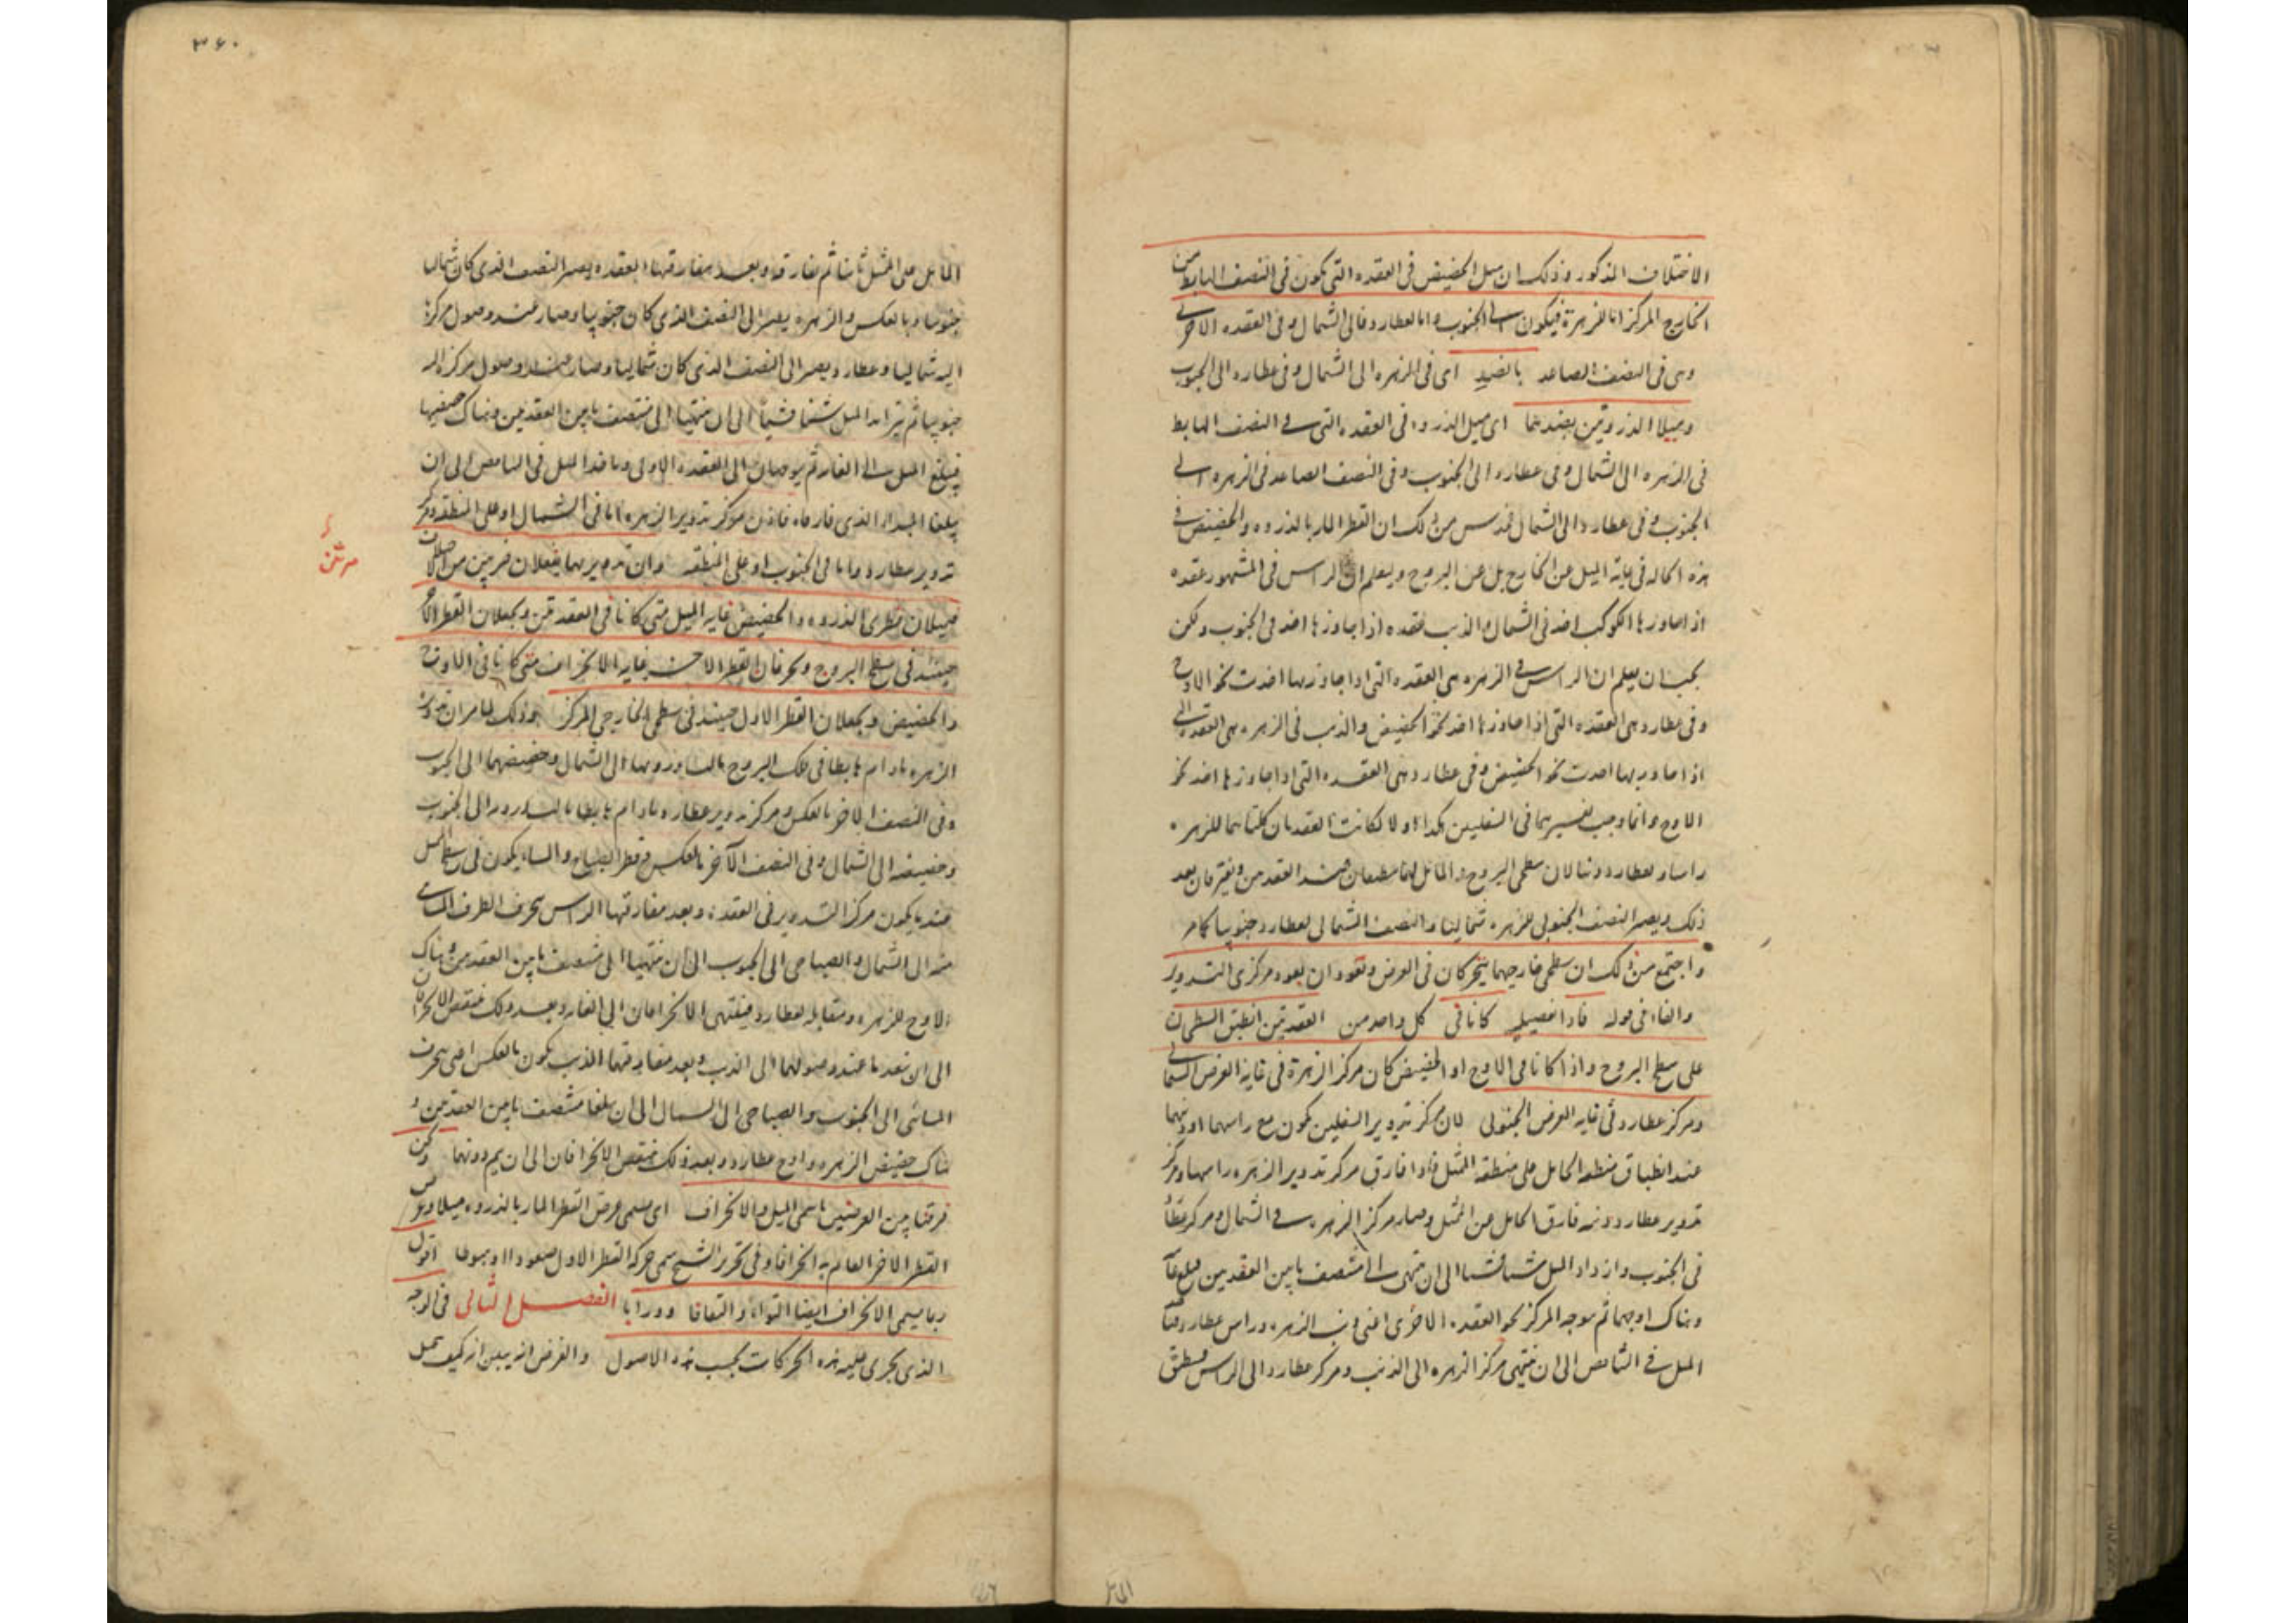 الاختلاف المذكور وذلك ان ميل الحضيض فى العقده التى يكون فى النصف الهابط من
الخارج المركز اما للزهرة فيكون الى الجنوب واما لعطارد فالى الشمال وفى العقده الاخرى
وهى فى النصف الصاعد بالضد اى فى الزهره الى الشمال وفى عطارد الى الجنوب
وميلا الذروتين بضدهما اى ميل الذروه فى العقده التى فى النصف الهابط
فى الزهره الى الشمال وفى عطارد الى الجنوب وفى النصف الصاعد فى الزهره الى
الجنوب وفى عطارد الى الشمال من ذلك ان القطر المار بالذروه والحضيض فى
هذه الحاله فى غاية الميل عن الخارج بل عن البروج وليعلم ان الراس فى المشهور عقده
اذا جاوزها الكوكب اخذ فى الشمال والذنب عقده اذا جاوزها اخذ فى الجنوب ولكن
يجب ان يعلم ان الراس فى الزهره هى العقده التى اذا جاوزتها اخذت نحو الاوج
وفى عطارد هى العقده التى اذا جاوزها اخذ نحو الحضيض والذنب فى الزهره هى العقده التى
اذا جاوزتها اخذت نحو الحضيض وفى عطارد هى العقده التى اذا جاوزها اخذ نحو
الاوج وانما وجب تفسيرهما فى السفليين هكذا اذ لولا لكانت العقدتان كلتاهما للزهره
راسا ولعطارد ذنبا لان سطحى البروج والمائل لهما ينطبقان عند العقدتين ويفترقان بعد
ذلك ويصير النصف الجنوبى للزهره شماليا والنصف الشمالى لعطارد جنوبيا كما مر
واجتمع من ذلك ان سطحى خارجيهما يتحركان فى العرض وتعودان بعود مركزى التدوير
والفاء فى قوله فاذا تفصيليه كانا فى كل واحد من العقدتين انطبق السطحان
على سطح البروج واذا كانا فى الاوج او الحضيض كان مركز الزهرة فى غاية العرض الشمالى
ومركز عطارد فى غايه العرض الجنوبى لان مركز تدوير السفليين يكون مع راسهما او ذنبهما
عند انطباق منطقه المائل على منطقه الممثل فاذا فارق مركز تدوير الزهره راسها ومركز
تدوير عطارد ذنبه فارق المائل عن الممثل وصار مركز الزهره فى الشمال ومركز عطارد
فى الجنوب وازداد الميل شيئا فشيئا الى ان ينتهى الى منتصف ما بين العقدتين فبلغ غايته
وهناك اوجهما ثم يتوجه المركز نحو العقده الاخرى اعنى ذنب الزهره وراس عطارد فياخذ
الميل فى التناقص الى ان ينتهى مركز الزهره الى الذنب ومركز عطارد الى الراس فينطبق
المائل
٣٦٠
المائل على الممثل ثانيا ثم يفارقه وبعد مفارقتها العقده يصير النصف الذى كان شماليا
جنوبيا وبالعكس والزهره يصير الى النصف الذى كان جنوبيا وصار عند وصول مركزها
اليه شماليا وعطارد يصير الى النصف الذى كان شماليا وصار عند وصول مركزه اليه
جنوبيا ثم يتزايد الميل شيئا فشيئا الى ان ينتهيا الى منتصف ما بين العقدتين وهناك حضيضها
فيبلغ الميل الى الغايه ثم يتوجهان الى العقده الاولى وياخذ الميل فى التناقص الى ان
يبلغا المبدا الذى فارقاه فاذن مركز تدوير الزهره اما فى الشمال او على المنطقه ومركز
تدوير عطارد اما فى الجنوب او على المنطقه وان تدويريهما يفعلان ضربين من الحركات
فيميلان قطرى الذروه والحضيض غايه الميل متى كانا فى العقدتين ويجعلان القطر الاخر
حينئذ فى سطح البروج ويحرفان القطر الاخر غايه الانحراف متى كانا فى الاوج
والحضيض ويجعلان القطر الاول حينئذ فى سطحى الخارجى المركز وذلك لما مر ان تدوير
الزهره مادام هابطا فى فلك البروج مالت ذروتها الى الشمال وحضيضها الى الجنوب
وفى النصف الاخر بالعكس ومركز تدوير عطارد مادام هابطا مالت ذروته الى الجنوب
وحضيضه الى الشمال وفى النصف الآخر بالعكس وقطر الصباح والمساء يكون فى سطح الممثل
عندما يكون مركز التدوير فى العقده وبعد مفارقتها الراس يحرف الطرف المسائى
منه الى الشمال والصباحى الى الجنوب الى ان ينتهيا الى منتصف ما بين العقدتين وهناك
الاوج للزهره ومقابله لعطارد فينتهى الانحرافان الى الغايه وبعد ذلك ينتقص الانحرافان
الى ان ينعدما عند وصولهما الى الذنب وبعد مفارقتهما الذنب يكون بالعكس اعنى يحرف
المسائى الى الجنوب والصباحى الى الشمال الى ان يبلغا منتصف ما بين العقدتين و
هناك حضيض الزهره واوج عطارد وبعد ذلك ينتقص الانحرافان الى ان يتم دورتهما ونحن
فرقنا بين العرضين باسمى الميل والانحراف اى سمى عرض القطر المار بالذروه ميلا وعرض
القطر الاخر القائم به انحرافا وفى تحرير الشيخ سمى حركه القطر الاول صعودا او هبوطا اقول
ربما يسمى الانحراف ايضا التواء والتفافا وورابا الفصل الثانى فى الوجه
الذى يجرى عليه هذه الحركات بحسب هذه الاصول والغرض انه يبين انه كيف يمكن